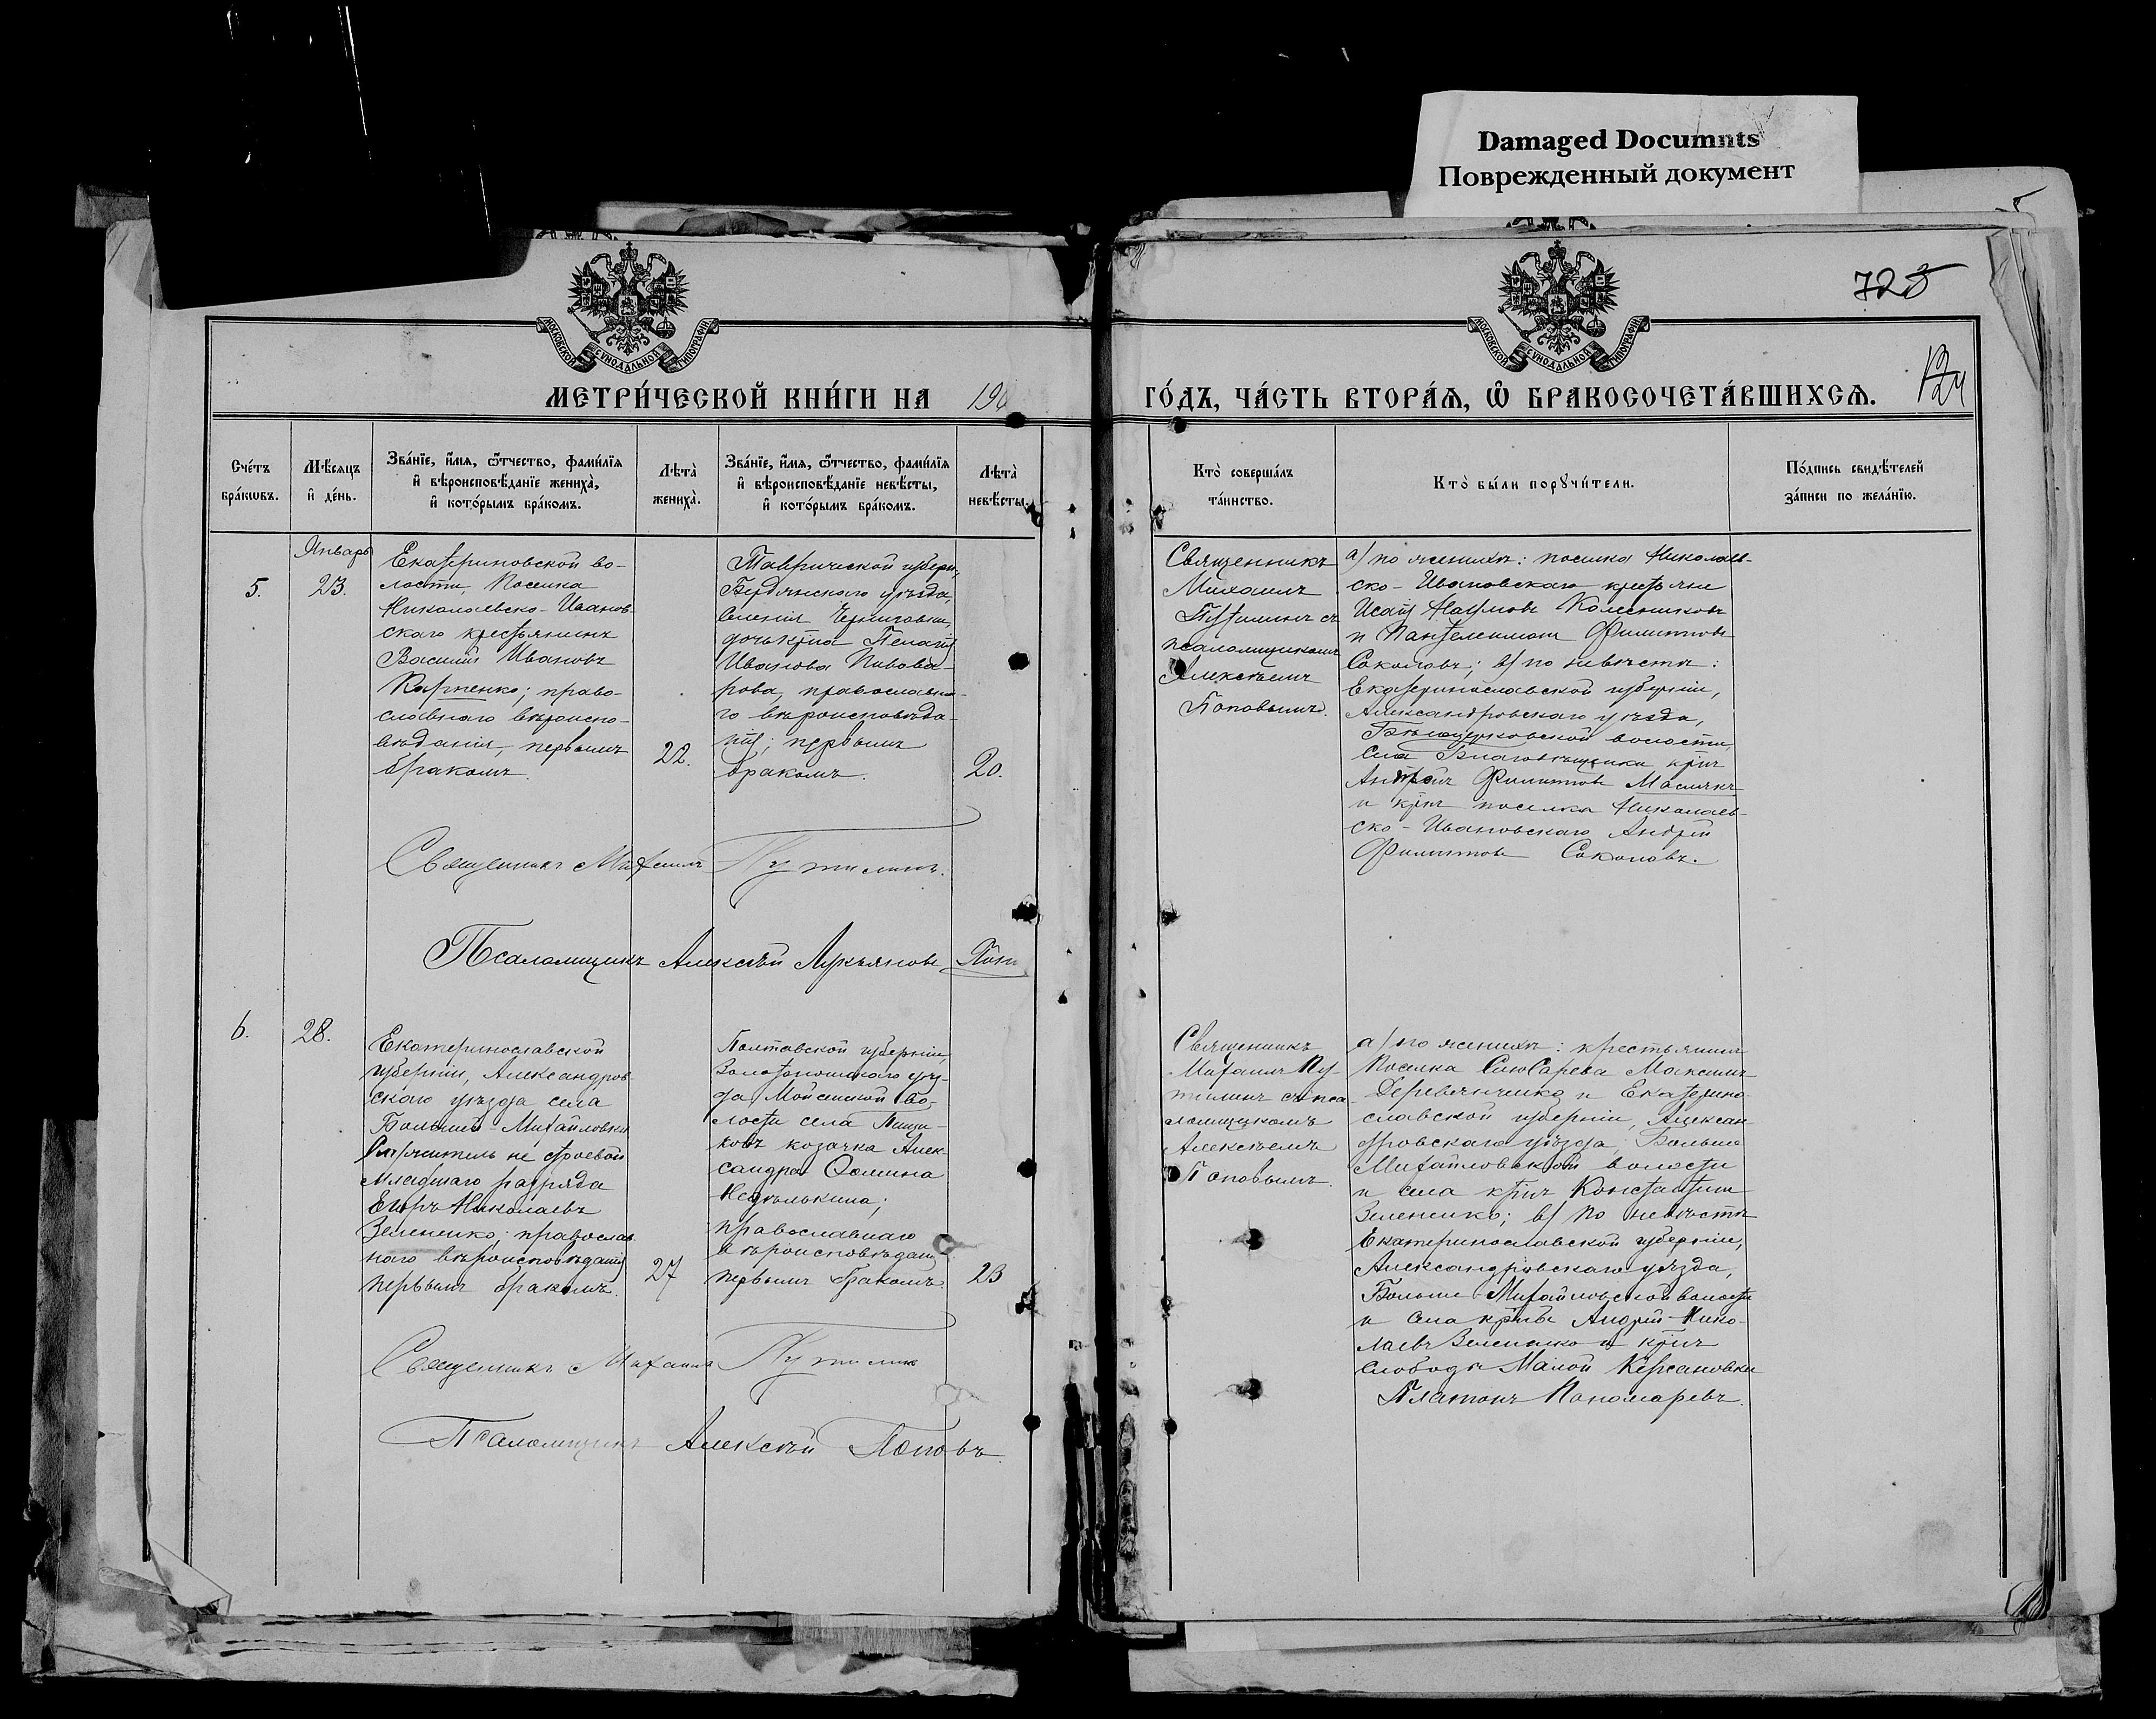 Damaged Documnts
Поврежденный документ
725
МОСКОВСКОЙ СѴНОДАЛЬНОЙ ТИПОГРАФІИ
МОСКОВСКОЙ СѴНОДАЛЬНОЙ ТИПОГРАФІИ
МЕТРИ́ЧЕСКОЙ КНИ́ГИ НА 190
ГО́ДЪ, ЧА́СТЬ ВТОРА́Я, Ѡ҆ БРАКОСОЧЕТА́ВШИХСѦ.
124
Сче́тъ
бра́кѡвъ.
Мѣ́сяцъ
и҆ де́нь.
Зва́нїе, и҆́мя, ѻ҆́тчество, фами́лїя
и҆ вѣроисповѣ́данїе жениха̀,
и҆ кото́рымъ бра́комъ.
Лѣта̀
жениха̀.
Зва́нїе, и҆́мя, ѻ҆́тчество, фами́лїя
и҆ вѣроисповѣ́данїе невѣ́сты,
и҆ кото́рымъ бра́комъ.
Лѣта̀
невѣ́сты.
Кто̀ соверша́лъ
та́инство.
Кто̀ бы́ли порꙋчи́тели.
По́дпись свидѣ́телей
за́писи по жела́нїю.
5.
Январь
23.
Екатериновской во-
лости, Поселка
Николаевско-Иванов
скаго крестьянинъ
Василій Ивановъ
Карпенко; право-
славнаго вѣроиспо-
вѣданія, первымъ
бракомъ.
22.
Таврической губерн,
Бердянскаго уѣзда,
селенія Черниговки,
дочь кр-на Пелагія
Иванова Пивова-
рова, православна-
го вѣроисповѣда-
нія; первымъ
бракомъ.
20.
Священникъ
Михаилъ
Путилинъ съ
псаломщикомъ
Алексѣемъ
Поповымъ.
а) по женихѣ: поселка Николаев-
ско-Ивановскаго крестьяне
Исай Наумовъ Колесниковъ
и Пантелеимонъ Филиповъ
Соколовъ; в) по невѣстѣ:
Екатеринославской губерніи,
Александровскаго уѣзда,
Бѣлоцерковской волости,
села Благовѣщенки кр-нъ
Андрей Филиповъ
и кр-нъ поселка Николаев-
ско-Ивановскаго Андрей
Филиповъ Соколовъ.
Священникъ Михаилъ Путилинъ.
Псаломщикъ Алексѣй Лукьяновъ Попо
6.
28.
Екатеринославской
губерніи, Александров-
скаго уѣзда села
Больше-Михайловки
не строевой
младшаго разряда
Егоръ Николаевъ
Зеленко; православ
наго вѣроисповѣданія
первымъ бракомъ.
27
Полтавской губерніи,
Золотоношскаго уѣз-
да, Мойсенской во-
лости села Пищи-
ковъ козачка Алек-
сандра Фомина
Недѣлькина;
православнаго
вѣроисповѣданія
первымъ бракомъ.
23
Священникъ
Михаилъ Пу-
тилинъ съ пса-
ломщикомъ
Алексѣемъ
Поповымъ.
а) по женихѣ: крестьянинъ
Поселка Слюсарева Максимъ
Деревянченко и Екатерино-
славской губерніи, Алексан-
дровскаго уѣзда, Больше
Михайловской волости
и села кр-нъ Константинъ
Зеленко; в) по невѣстѣ
Екатеринославской губерніи,
Александровскаго уѣзда,
Больше-Михайловской волости
и села кр-не Андрей Нико-
лаевъ Зеленко и кр-нъ
слободы Малой Кирсановки
Платонъ Пономаревъ.
Священникъ Михаилъ Путилинъ
Псаломщикъ Алексѣй Поповъ.